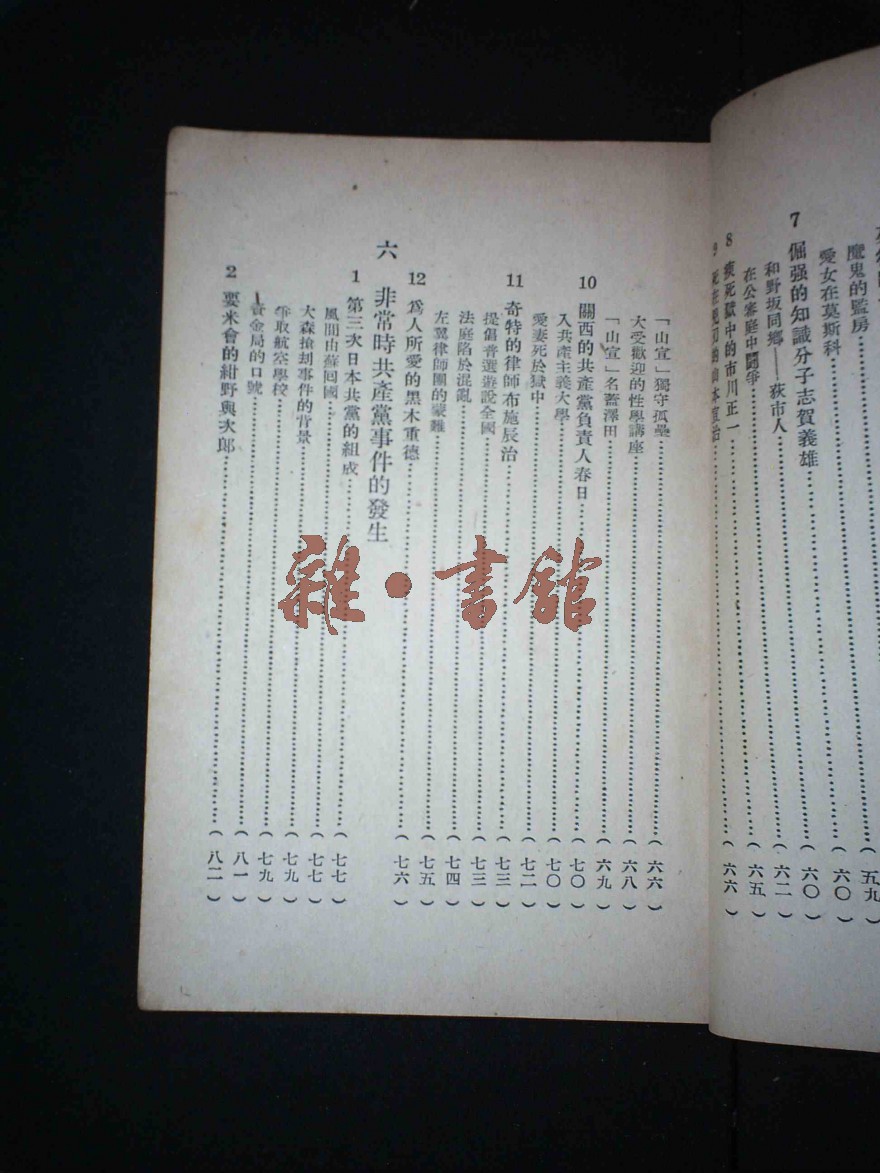 魔鬼的監房……(五九
愛女在莫斯科……(六〇)
7 倔强的知識分子志賀義雄……(六〇)
和野坂同鄉——荻市人……(六二)
在公審庭中鬪爭……(六五)
8 瘐死獄中的市川正一……(六六)
山本宣治
「山宣」獨守孤壘……(六六)
大受歡迎的性學講座……(六八)
「山宣」名蓋澤田……(六九)
10 關西的共產黨負責人春日……(七〇)
入共產主義大學……(七〇)
愛妻死於獄中……(七二)
11 奇特的律師布施辰治……(七三)
提倡普選遊設全國……(七三)
法庭陷於混亂……(七四)
左翼律師團的蒙難……(七五)
12 爲人所愛的黑木重德……(七六)
六 非常時共產黨事件的發生
1 第三次日本共黨的組成……(七七)
風間由蘇回國……(七七)
大森搶刼事件的背景……(七九)
爭取航空學校……(七九)
資金局的口號……(八一)
2 要米會的紺野與次郎……(八二)
雜·書館